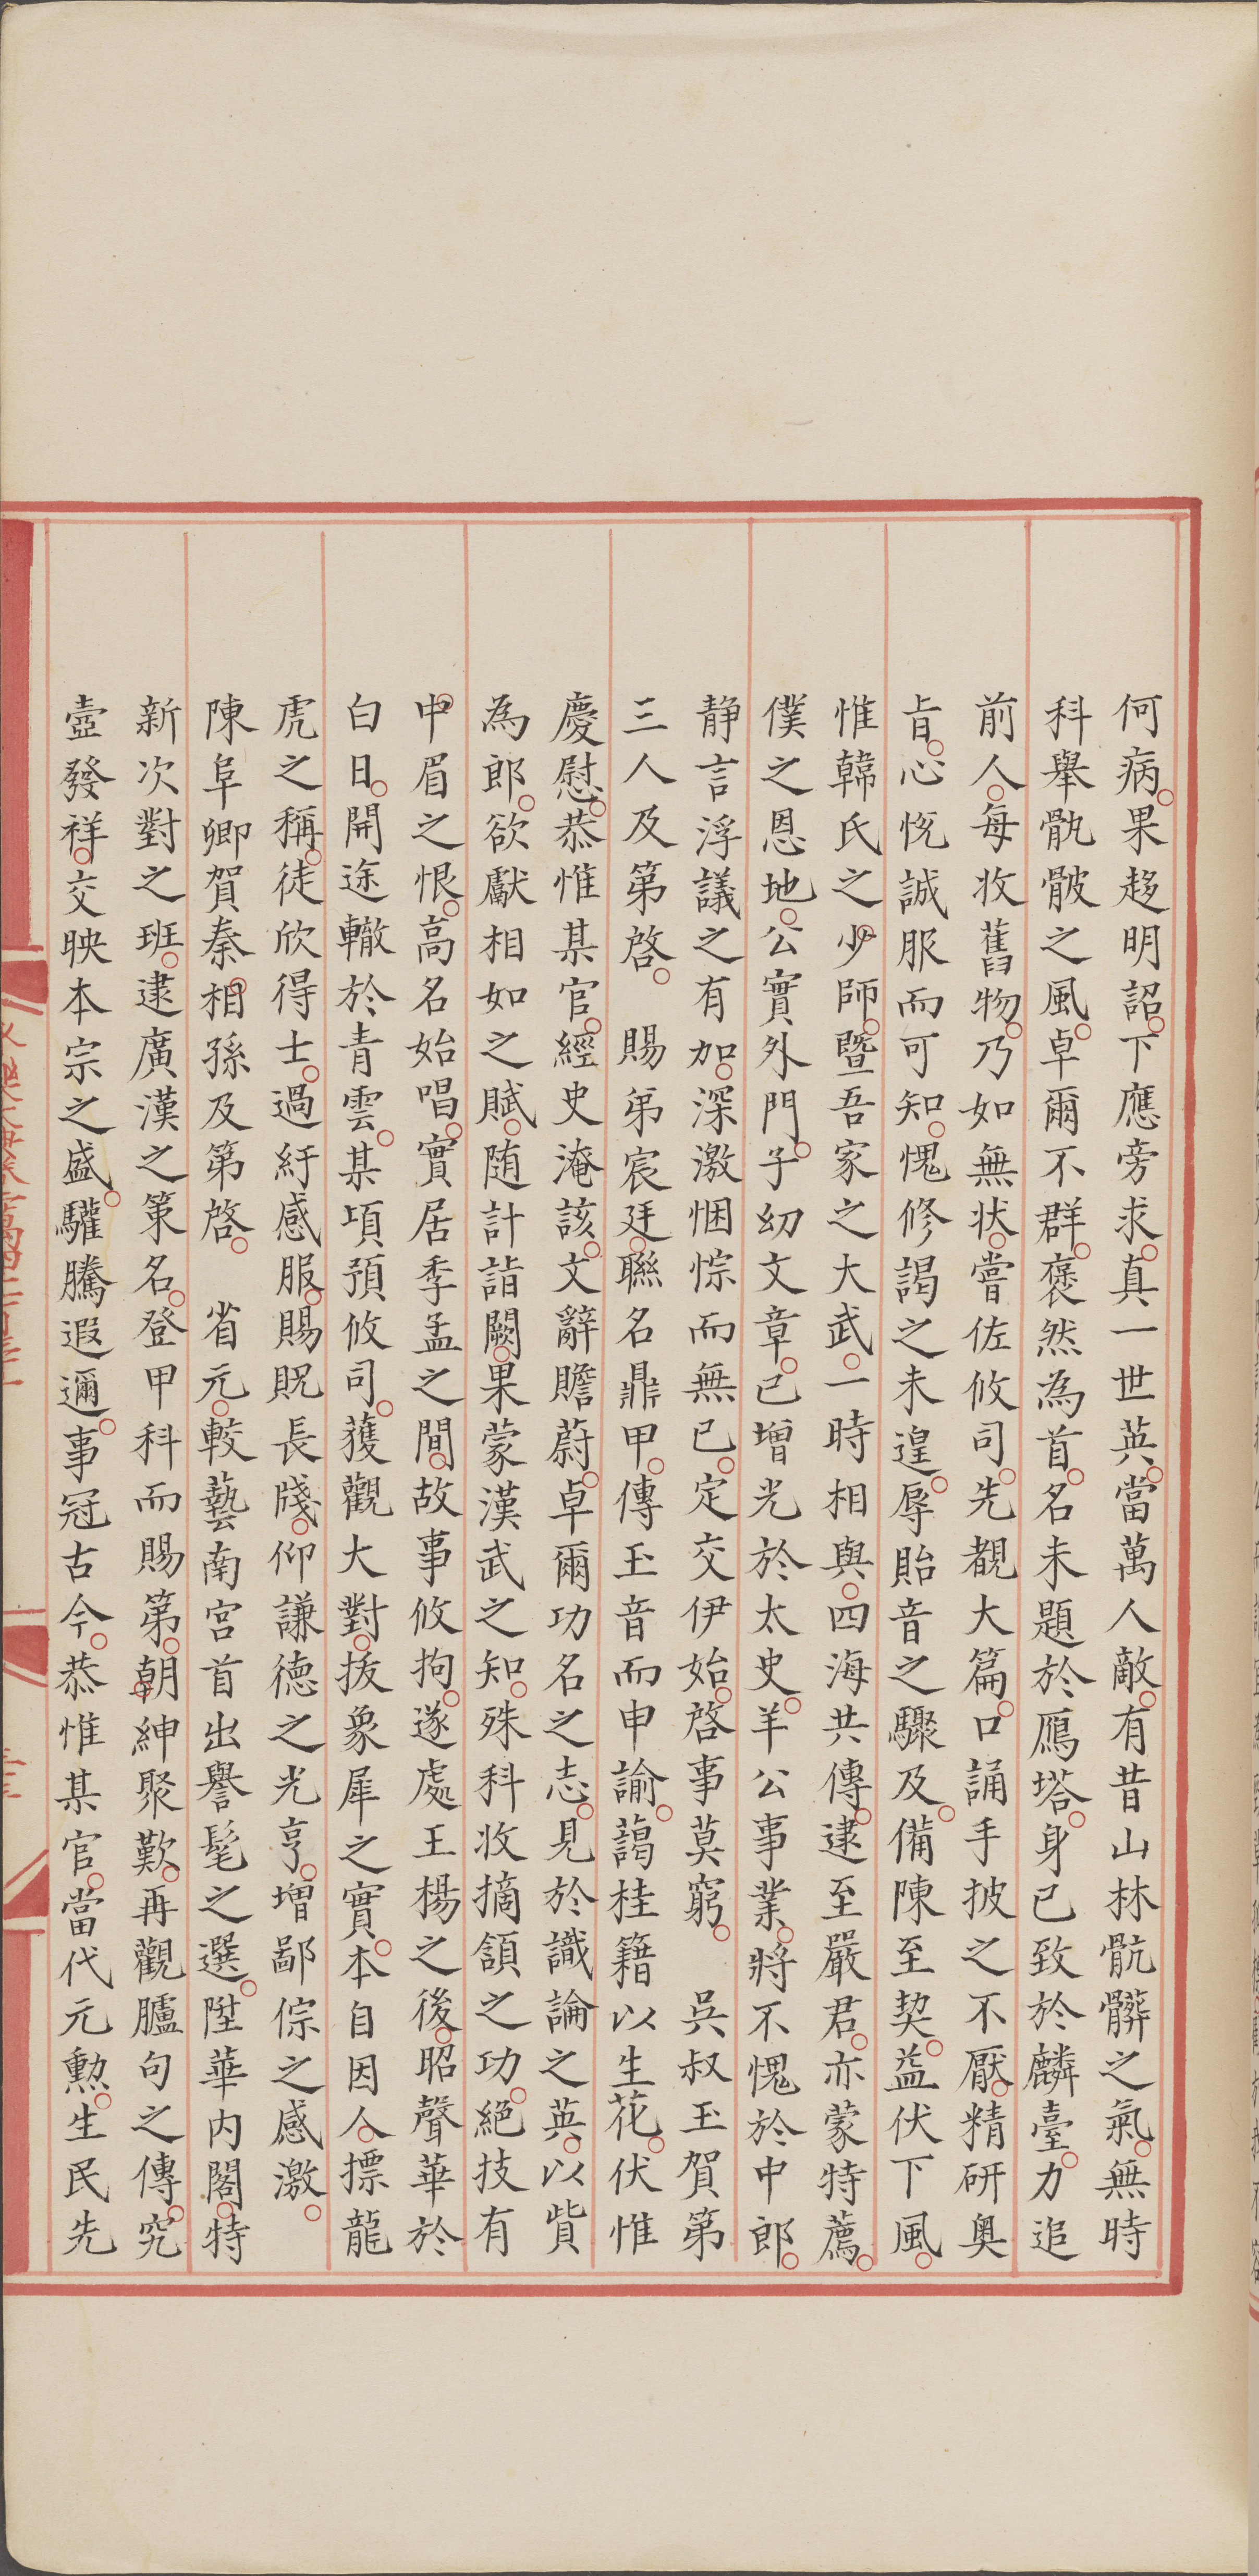 何病果趍明詔下應旁求真一世英當萬人敵有昔山林骯髒之氣無時
科舉骩骳之風卓爾不群褎然為首名未題於鴈塔身已致於麟臺力追
前人每收舊物乃如無狀嘗佐攸司先覩大篇口誦手披之不厭精研奥
㫖心恱誠服而可知愧修謁之未遑辱貽音之驟及備陳至契益伏下風
惟韓氏之少師曁吾家之大武一時相與四海共傳逮至嚴君亦蒙特薦
僕之恩地公實外門子㓜文章已增光於太史羊公事業將不愧於中郎
静言浮議之有加深激悃悰而無已定交伊始啓事莫窮　吳叔玉賀第
三人及第啓　賜第宸廷聯名鼎甲傳玉音而申諭藹桂籍以生花伏惟
慶慰恭惟某官經史淹該文辭贍蔚卓爾功名之志見於識論之英以貲
為郎欲獻相如之賦随計詣闕果蒙漢武之知殊科收摘頷之功絕技有
中眉之恨高名始唱實居季孟之間故事攸拘遂處王楊之後昭聲華於
白日開途轍於青雲某項預攸司獲觀大對拔象犀之實本自因人摽龍
虎之稱徒欣得士過紆感服賜貺長牋仰謙德之光亨增鄙倧之感激
陳阜卿賀秦相孫及第啓　省元較藝南宮首出譽髦之選陞華内閣特
新次對之班逮廣漢之策名登甲科而賜第朝紳聚歎再觀臚句之傳究
壼發祥交映本宗之盛驩騰遐邇事冠古今恭惟某官當代元勲生民先